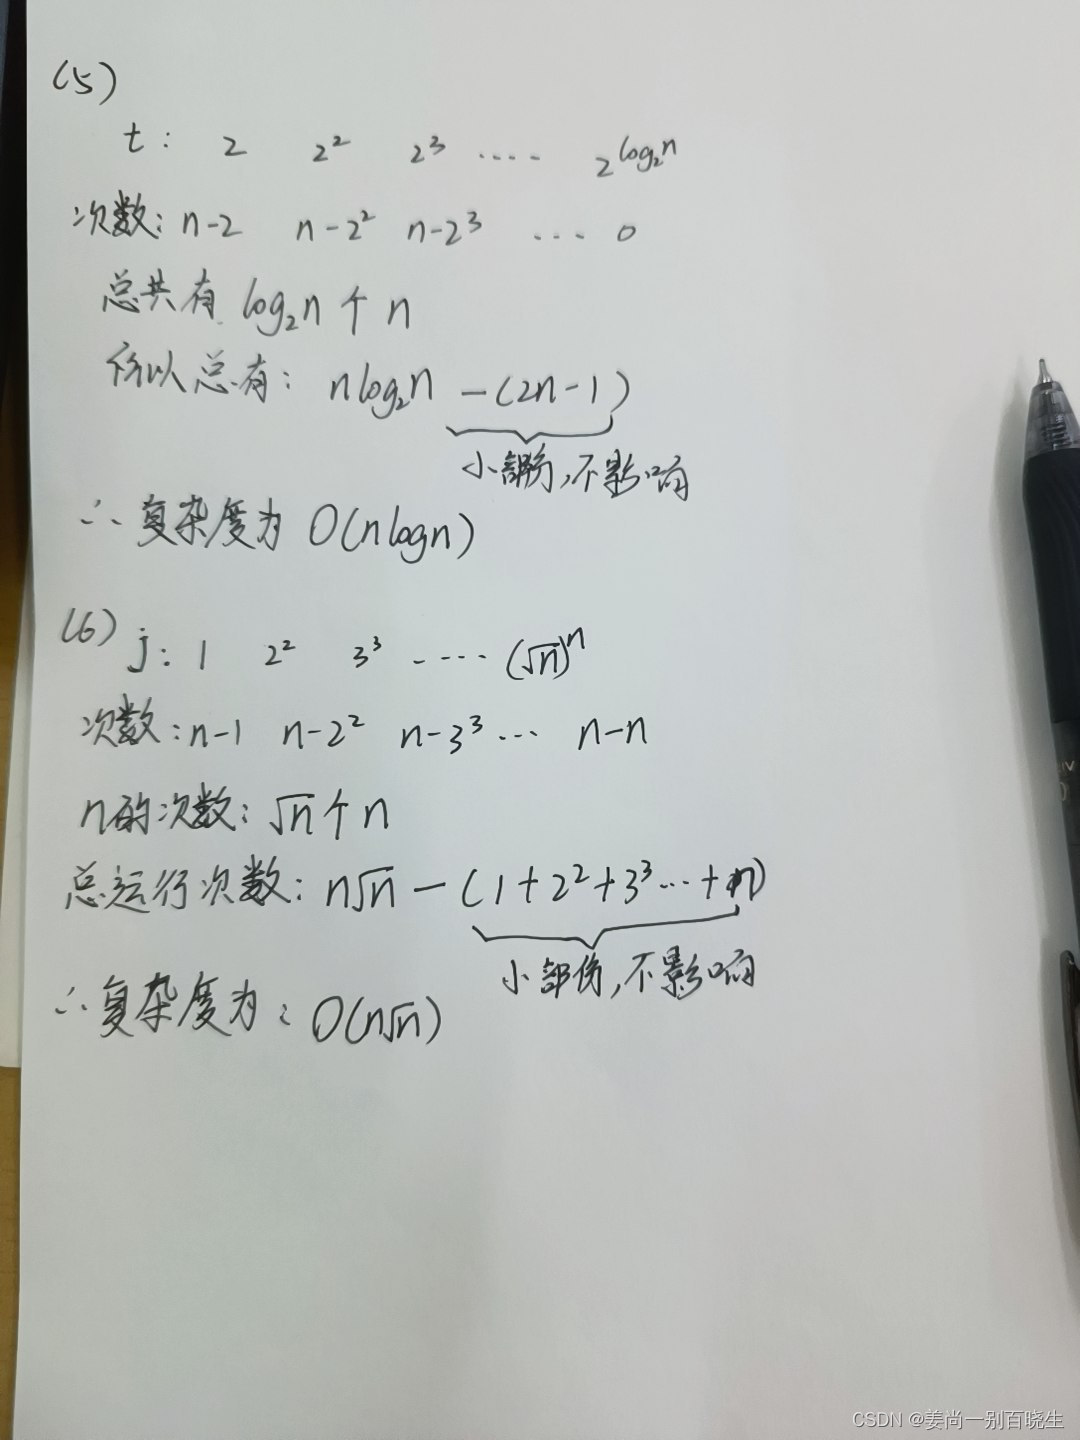 (5)
t: 2 2² 2³ ···· 2^{log₂n}
次数: n-2 n-2² n-2³ ··· 0
总共有 log₂n个n
所以总有: nlog₂n -(2n-1)
小部分,不影响
∴复杂度为 O(nlogn)
(6) j: 1 2² 3³ ····· (√n)ⁿ
次数: n-1 n-2² n-3³ ··· n-n
n的次数: √n个n
总运行次数: n√n-(1+2²+3³···+n)
小部份,不影响
∴复杂度为: O(n√n)
CSDN @姜尚一别百晓生